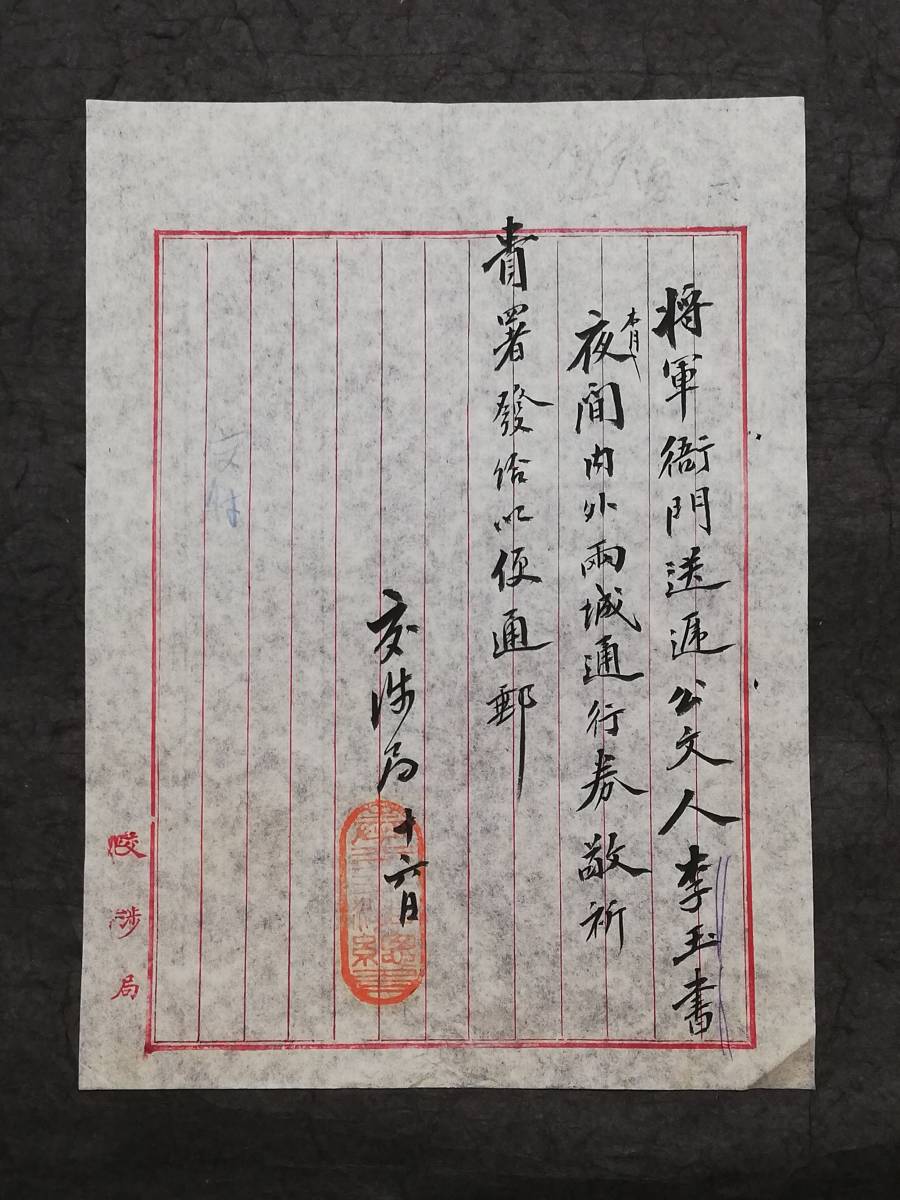 將軍衙門送遞公文人李玉書
本月
夜間內外兩城通行券敬祈
貴署發給以便通郵
交涉局
十六日
交涉局